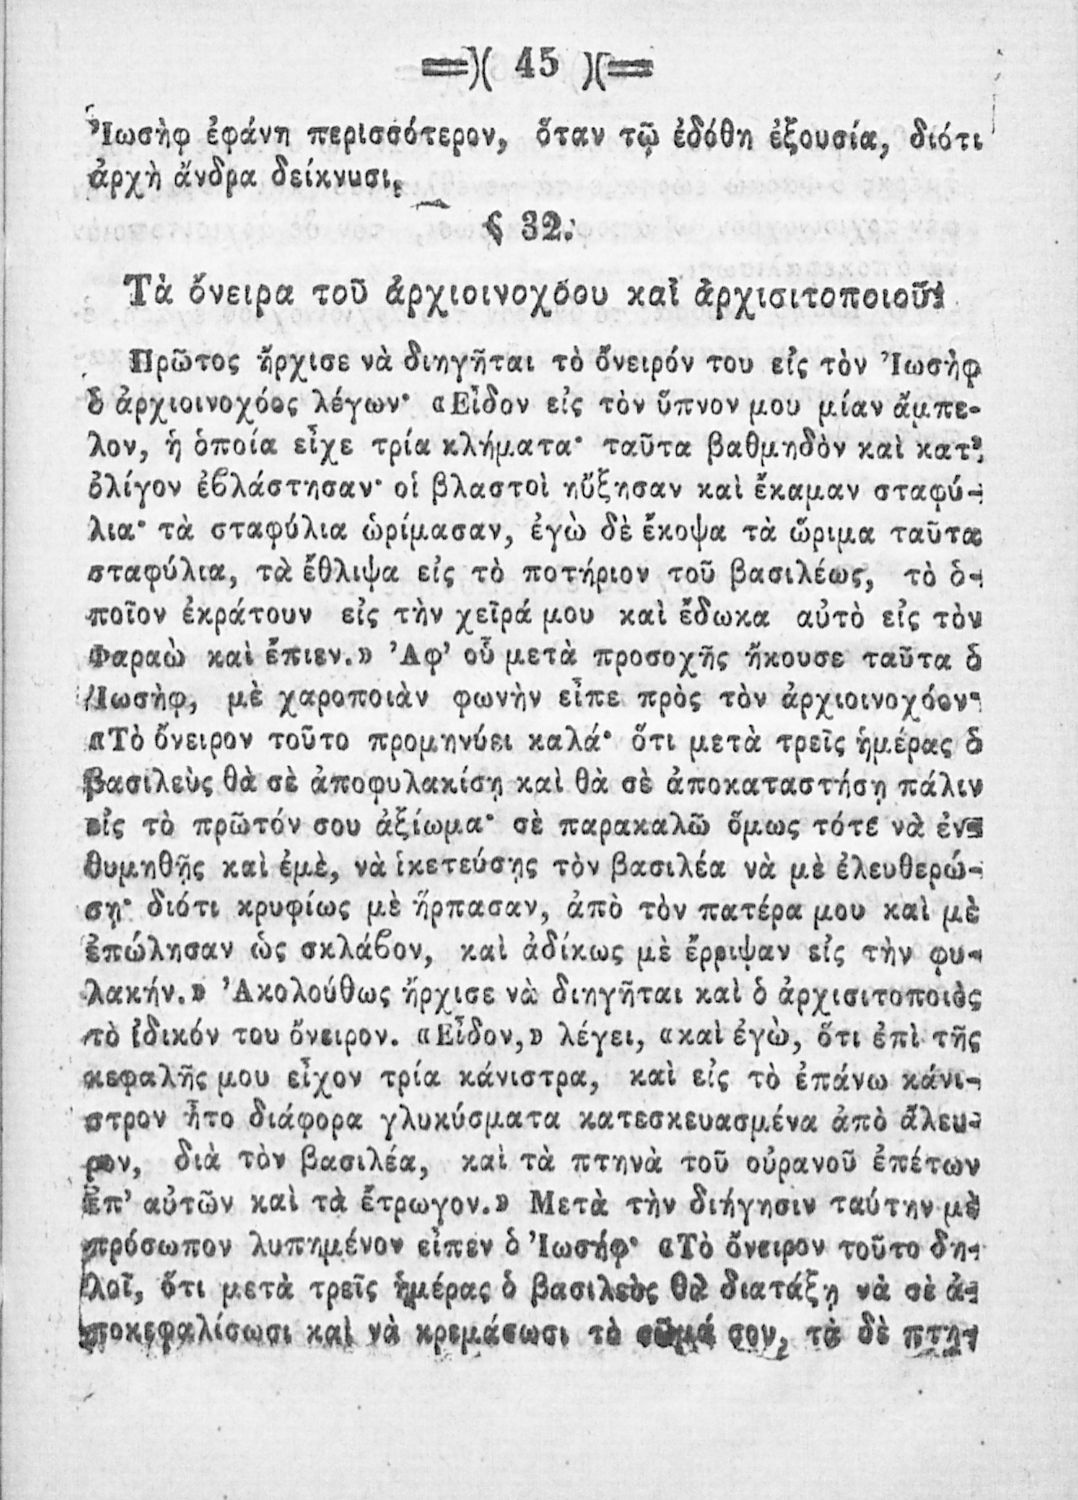 =)( 45 )(=
Ἰωσὴφ ἐφάνη περισσότερον, ὅταν τῷ ἐδόθη ἐξουσία, διότι
ἀρχὴ ἄνδρα δείκνυσι.
§ 32.
Τὰ ὄνειρα τοῦ ἀρχιοινοχόου καὶ ἀρχισιτοποιοῦ.
Πρῶτος ἤρχισε νὰ διηγῆται τὸ ὄνειρόν του εἰς τὸν Ἰωσὴφ
ὁ ἀρχιοινοχόος λέγων· «Εἶδον εἰς τὸν ὕπνον μου μίαν ἄμπε-
λον, ἡ ὁποία εἶχε τρία κλήματα· ταῦτα βαθμηδὸν καὶ κατ'
ὀλίγον ἐβλάστησαν· οἱ βλαστοὶ ηὔξησαν καὶ ἔκαμαν σταφύ-
λια· τὰ σταφύλια ὡρίμασαν, ἐγὼ δὲ ἔκοψα τὰ ὥριμα ταῦτα
σταφύλια, τὰ ἔθλιψα εἰς τὸ ποτήριον τοῦ βασιλέως, τὸ ὁ-
ποῖον ἐκράτουν εἰς τὴν χεῖρά μου καὶ ἔδωκα αὐτὸ εἰς τὸν
Φαραὼ καὶ ἔπιεν.» Ἀφ' οὗ μετὰ προσοχῆς ἤκουσε ταῦτα ὁ
Ἰωσὴφ, μὲ χαροποιὰν φωνὴν εἶπε πρὸς τὸν ἀρχιοινοχόον·
«Τὸ ὄνειρον τοῦτο προμηνύει καλά· ὅτι μετὰ τρεῖς ἡμέρας ὁ
βασιλεὺς θὰ σὲ ἀποφυλακίσῃ καὶ θὰ σὲ ἀποκαταστήσῃ πάλιν
εἰς τὸ πρῶτόν σου ἀξίωμα· σὲ παρακαλῶ ὅμως τότε νὰ ἐν-
θυμηθῇς καὶ ἐμὲ, νὰ ἱκετεύσῃς τὸν βασιλέα νὰ μὲ ἐλευθερώ-
σῃ· διότι κρυφίως μὲ ἥρπασαν, ἀπὸ τὸν πατέρα μου καὶ μὲ
ἐπώλησαν ὡς σκλάβον, καὶ ἀδίκως μὲ ἔρριψαν εἰς τὴν φυ-
λακήν.» Ἀκολούθως ἤρχισε νὰ διηγῆται καὶ ὁ ἀρχισιτοποιὸς
τὸ ἰδικόν του ὄνειρον. «Εἶδον,» λέγει, «καὶ ἐγὼ, ὅτι ἐπὶ τῆς
κεφαλῆς μου εἶχον τρία κάνιστρα, καὶ εἰς τὸ ἐπάνω κάνι-
στρον ἦτο διάφορα γλυκύσματα κατεσκευασμένα ἀπὸ ἄλευ-
ρον, διὰ τὸν βασιλέα, καὶ τὰ πτηνὰ τοῦ οὐρανοῦ ἐπέτων
ἐπ' αὐτῶν καὶ τὰ ἔτρωγον.» Μετὰ τὴν διήγησιν ταύτην μὲ
πρόσωπον λυπημένον εἶπεν ὁ Ἰωσήφ· «Τὸ ὄνειρον τοῦτο δη-
λοῖ, ὅτι μετὰ τρεῖς ἡμέρας ὁ βασιλεὺς θὰ διατάξῃ νὰ σὲ ἀ-
ποκεφαλίσωσι καὶ νὰ κρεμάσωσι τὸ σῶμά σου, τὰ δὲ πτη-